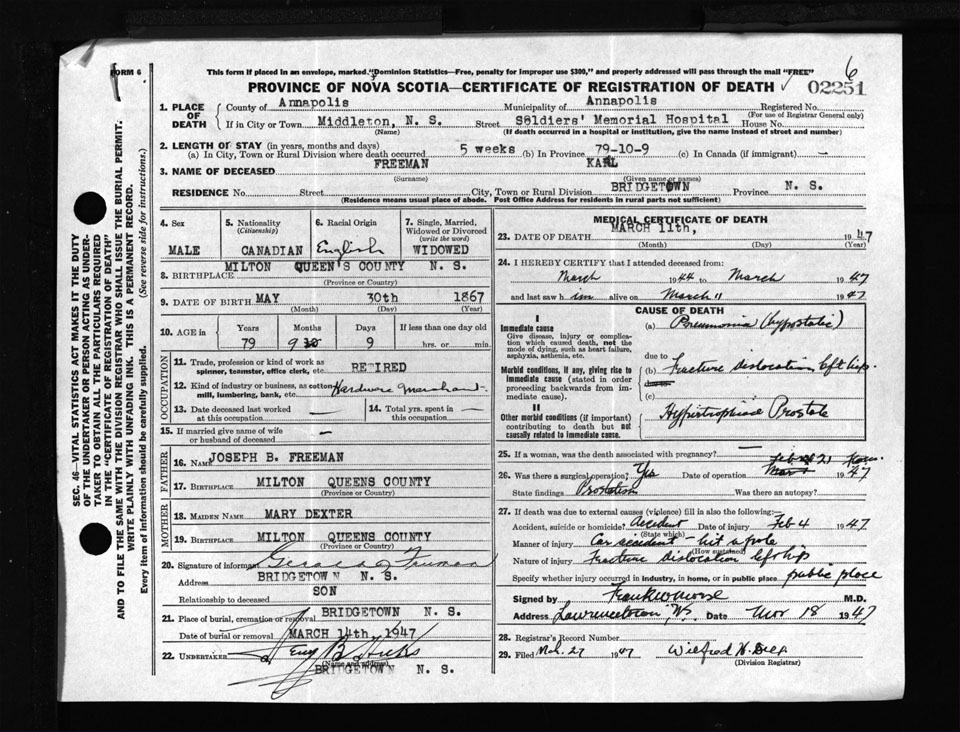 FORM 6
6
This form if placed in an envelope, marked "Dominion Statistics—Free, penalty for improper use $300," and properly addressed will pass through the mail "FREE"
PROVINCE OF NOVA SCOTIA—CERTIFICATE OF REGISTRATION OF DEATH
02251
SEC. 46—VITAL STATISTICS ACT MAKES IT THE DUTY
OF THE UNDERTAKER OR PERSON ACTING AS UNDER-
TAKER TO OBTAIN ALL THE PARTICULARS REQUIRED
IN THE "CERTIFICATE OF REGISTRATION OF DEATH"
AND TO FILE THE SAME WITH THE DIVISION REGISTRAR WHO SHALL ISSUE THE BURIAL PERMIT.
WRITE PLAINLY WITH UNFADING INK. THIS IS A PERMANENT RECORD.
Every item of information should be carefully supplied. (See reverse side for instructions.)
1. PLACE OF DEATH
County of Annapolis Municipality of Annapolis Registered No.
(For use of Registrar General only)
If in City or Town Middleton, N. S. Street Soldiers' Memorial Hospital House No.
(Name) (If death occurred in a hospital or institution, give the name instead of street and number)
2. LENGTH OF STAY (in years, months and days)
(a) In City, Town or Rural Division where death occurred 5 weeks (b) In Province 79-10-9 (c) In Canada (if immigrant) —
3. NAME OF DECEASED FREEMAN KARL
(Surname) (Given name or names)
RESIDENCE No. Street City, Town or Rural Division BRIDGETOWN Province N. S.
(Residence means usual place of abode. Post Office Address for residents in rural parts not sufficient)
4. Sex
MALE
5. Nationality
(Citizenship)
CANADIAN
6. Racial Origin
English
7. Single, Married,
Widowed or Divorced
(write the word)
WIDOWED
8. BIRTHPLACE MILTON QUEEN'S COUNTY N. S.
(Province or Country)
9. DATE OF BIRTH MAY 30th 1867
(Month) (Day) (Year)
10. AGE in
Years Months Days If less than one day old
79 9 9 hrs. or min.
OCCUPATION
11. Trade, profession or kind of work as
spinner, teamster, office clerk, etc. RETIRED
12. Kind of industry or business, as cotton
mill, lumbering, bank, etc. Hardware
13. Date deceased last worked
at this occupation —
14. Total yrs. spent in
this occupation —
15. If married give name of wife
or husband of deceased —
FATHER
16. Name JOSEPH B. FREEMAN
17. Birthplace MILTON QUEENS COUNTY
(Province or Country)
MOTHER
18. Maiden Name MARY DEXTER
19. Birthplace MILTON QUEENS COUNTY
(Province or Country)
20. Signature of informant Freeman
Address BRIDGETOWN N. S.
Relationship to deceased SON
21. Place of burial, cremation or removal BRIDGETOWN N. S.
Date of burial or removal MARCH 14th, 1947
22. UNDERTAKER Hicks
(Name and address)
BRIDGETOWN N. S.
MEDICAL CERTIFICATE OF DEATH
23. DATE OF DEATH MARCH 11th, 1947
(Month) (Day) (Year)
24. I HEREBY CERTIFY that I attended deceased from:
March 1944 to March 1947
and last saw him alive on March 11 1947
CAUSE OF DEATH
I
Immediate cause
Give disease, injury or complica-
tion which caused death, not the
mode of dying, such as heart failure,
asphyxia, asthenia, etc.
(a) Pneumonia (hypostatic)
due to
Morbid conditions, if any, giving rise to
immediate cause (stated in order
proceeding backwards from im-
mediate cause).
(b) Fracture dislocation left hip.
(c)
II
Other morbid conditions (if important)
contributing to death but not
causally related to immediate cause.
Prostate
25. If a woman, was the death associated with pregnancy? —
26. Was there a surgical operation? Yes Date of operation Feb 21 1947
State findings Was there an autopsy?
27. If death was due to external causes (violence) fill in also the following:
Accident, suicide or homicide? Accident Date of injury Feb 4 1947
(State which)
Manner of injury Car accident — hit a pole
(How sustained)
Nature of injury Fracture dislocation left hip
Specify whether injury occurred in industry, in home, or in public place public place
Signed by Frank Morse M.D.
Address Lawrencetown, N.S. Date Mar 18 1947
28. Registrar's Record Number
29. Filed Mch. 27 1947 Wilfred H.
(Division Registrar)